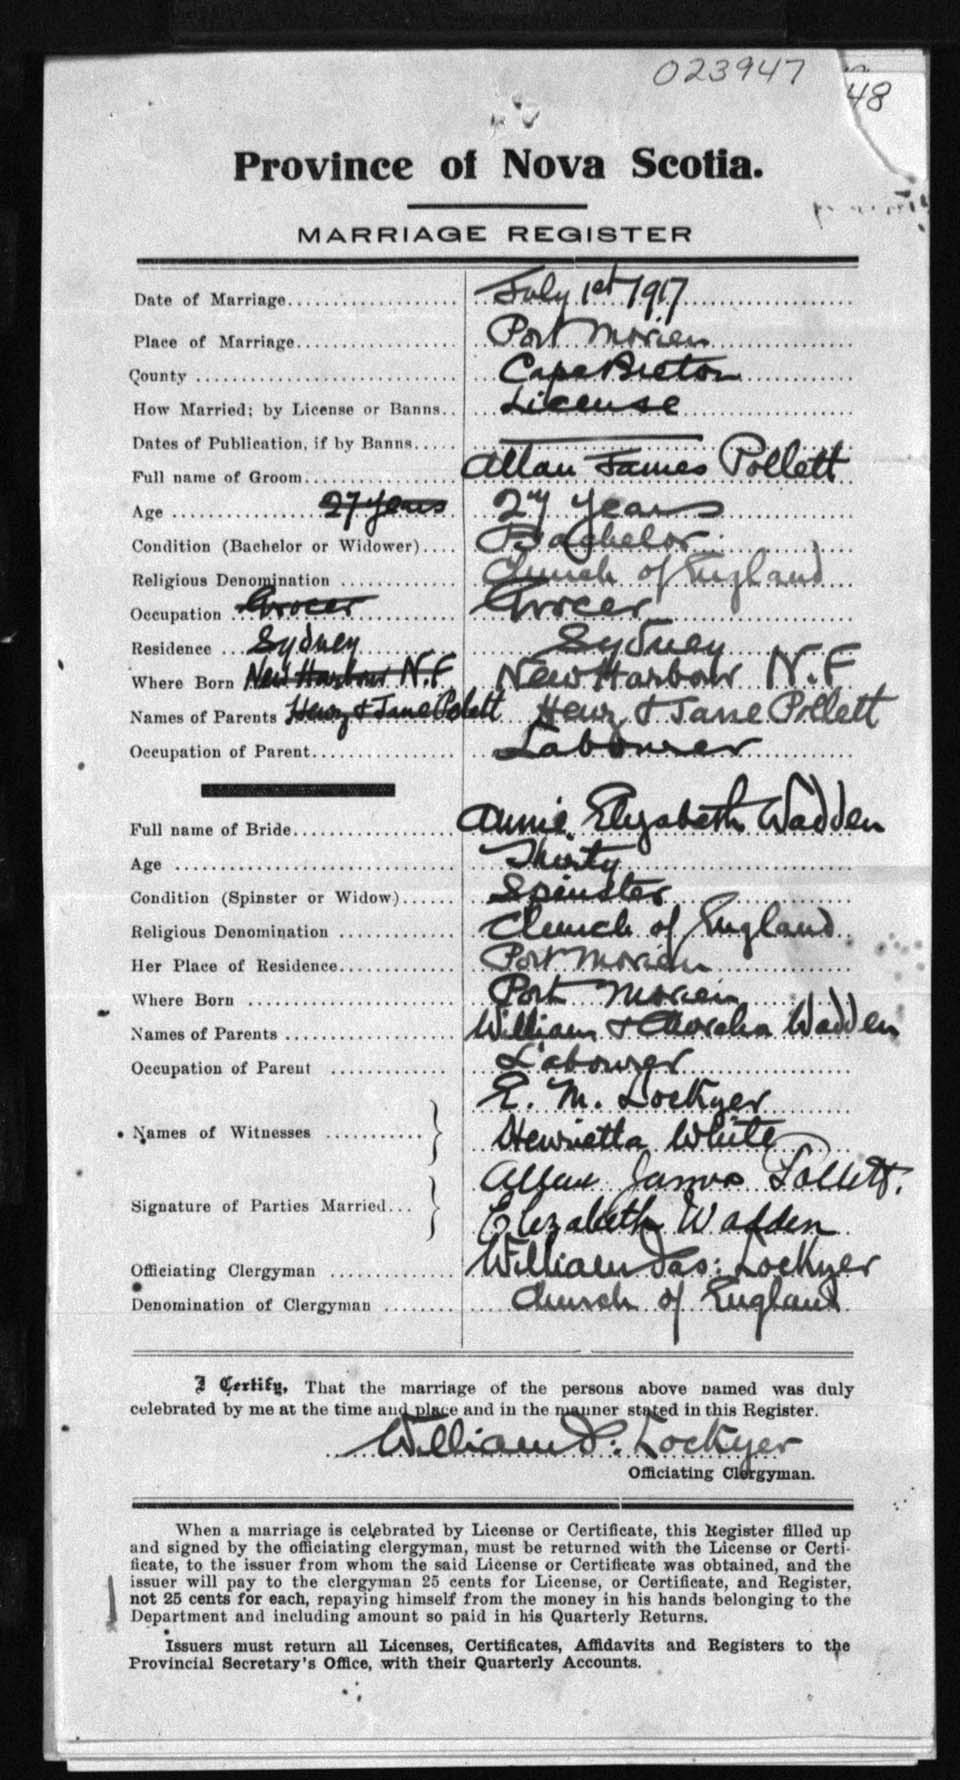 023947
48
Province of Nova Scotia.
MARRIAGE REGISTER
Date of Marriage.................. July 1st 1917
Place of Marriage................. Port Morien
County ............................ Cape Breton
How Married; by License or Banns.. License
Dates of Publication, if by Banns.....
Full name of Groom................ Allan James Pollett
Age ............... 27 years 27 years
Condition (Bachelor or Widower).... Bachelor
Religious Denomination ............ Church of England
Occupation Grocer Grocer
Residence ... Sydney Sydney
Where Born New Harbour N.F New Harbour N.F
Names of Parents Henry & Jane Pollett Henry & Jane Pollett
Occupation of Parent.............. Labourer
Full name of Bride................ Annie Elizabeth Wadden
Age ............................ Thirty
Condition (Spinster or Widow)...... Spinster
Religious Denomination ............ Church of England
Her Place of Residence............ Port Morien
Where Born ...................... Port Morien
Names of Parents ................. William & Wadden
Occupation of Parent ............ Labourer
E. M. Lockyer
Names of Witnesses ........... } Henrietta White
Allan James Pollett.
Signature of Parties Married... }
Elizabeth Wadden
Officiating Clergyman ............. William Jas: Lockyer
Denomination of Clergyman ........ Church of England
I Certify, That the marriage of the persons above named was duly
celebrated by me at the time and place and in the manner stated in this Register.
William J: Lockyer
Officiating Clergyman.
When a marriage is celebrated by License or Certificate, this Register filled up
and signed by the officiating clergyman, must be returned with the License or Certi-
ficate, to the issuer from whom the said License or Certificate was obtained, and the
issuer will pay to the clergyman 25 cents for License, or Certificate, and Register,
not 25 cents for each, repaying himself from the money in his hands belonging to the
Department and including amount so paid in his Quarterly Returns.
Issuers must return all Licenses, Certificates, Affidavits and Registers to the
Provincial Secretary's Office, with their Quarterly Accounts.